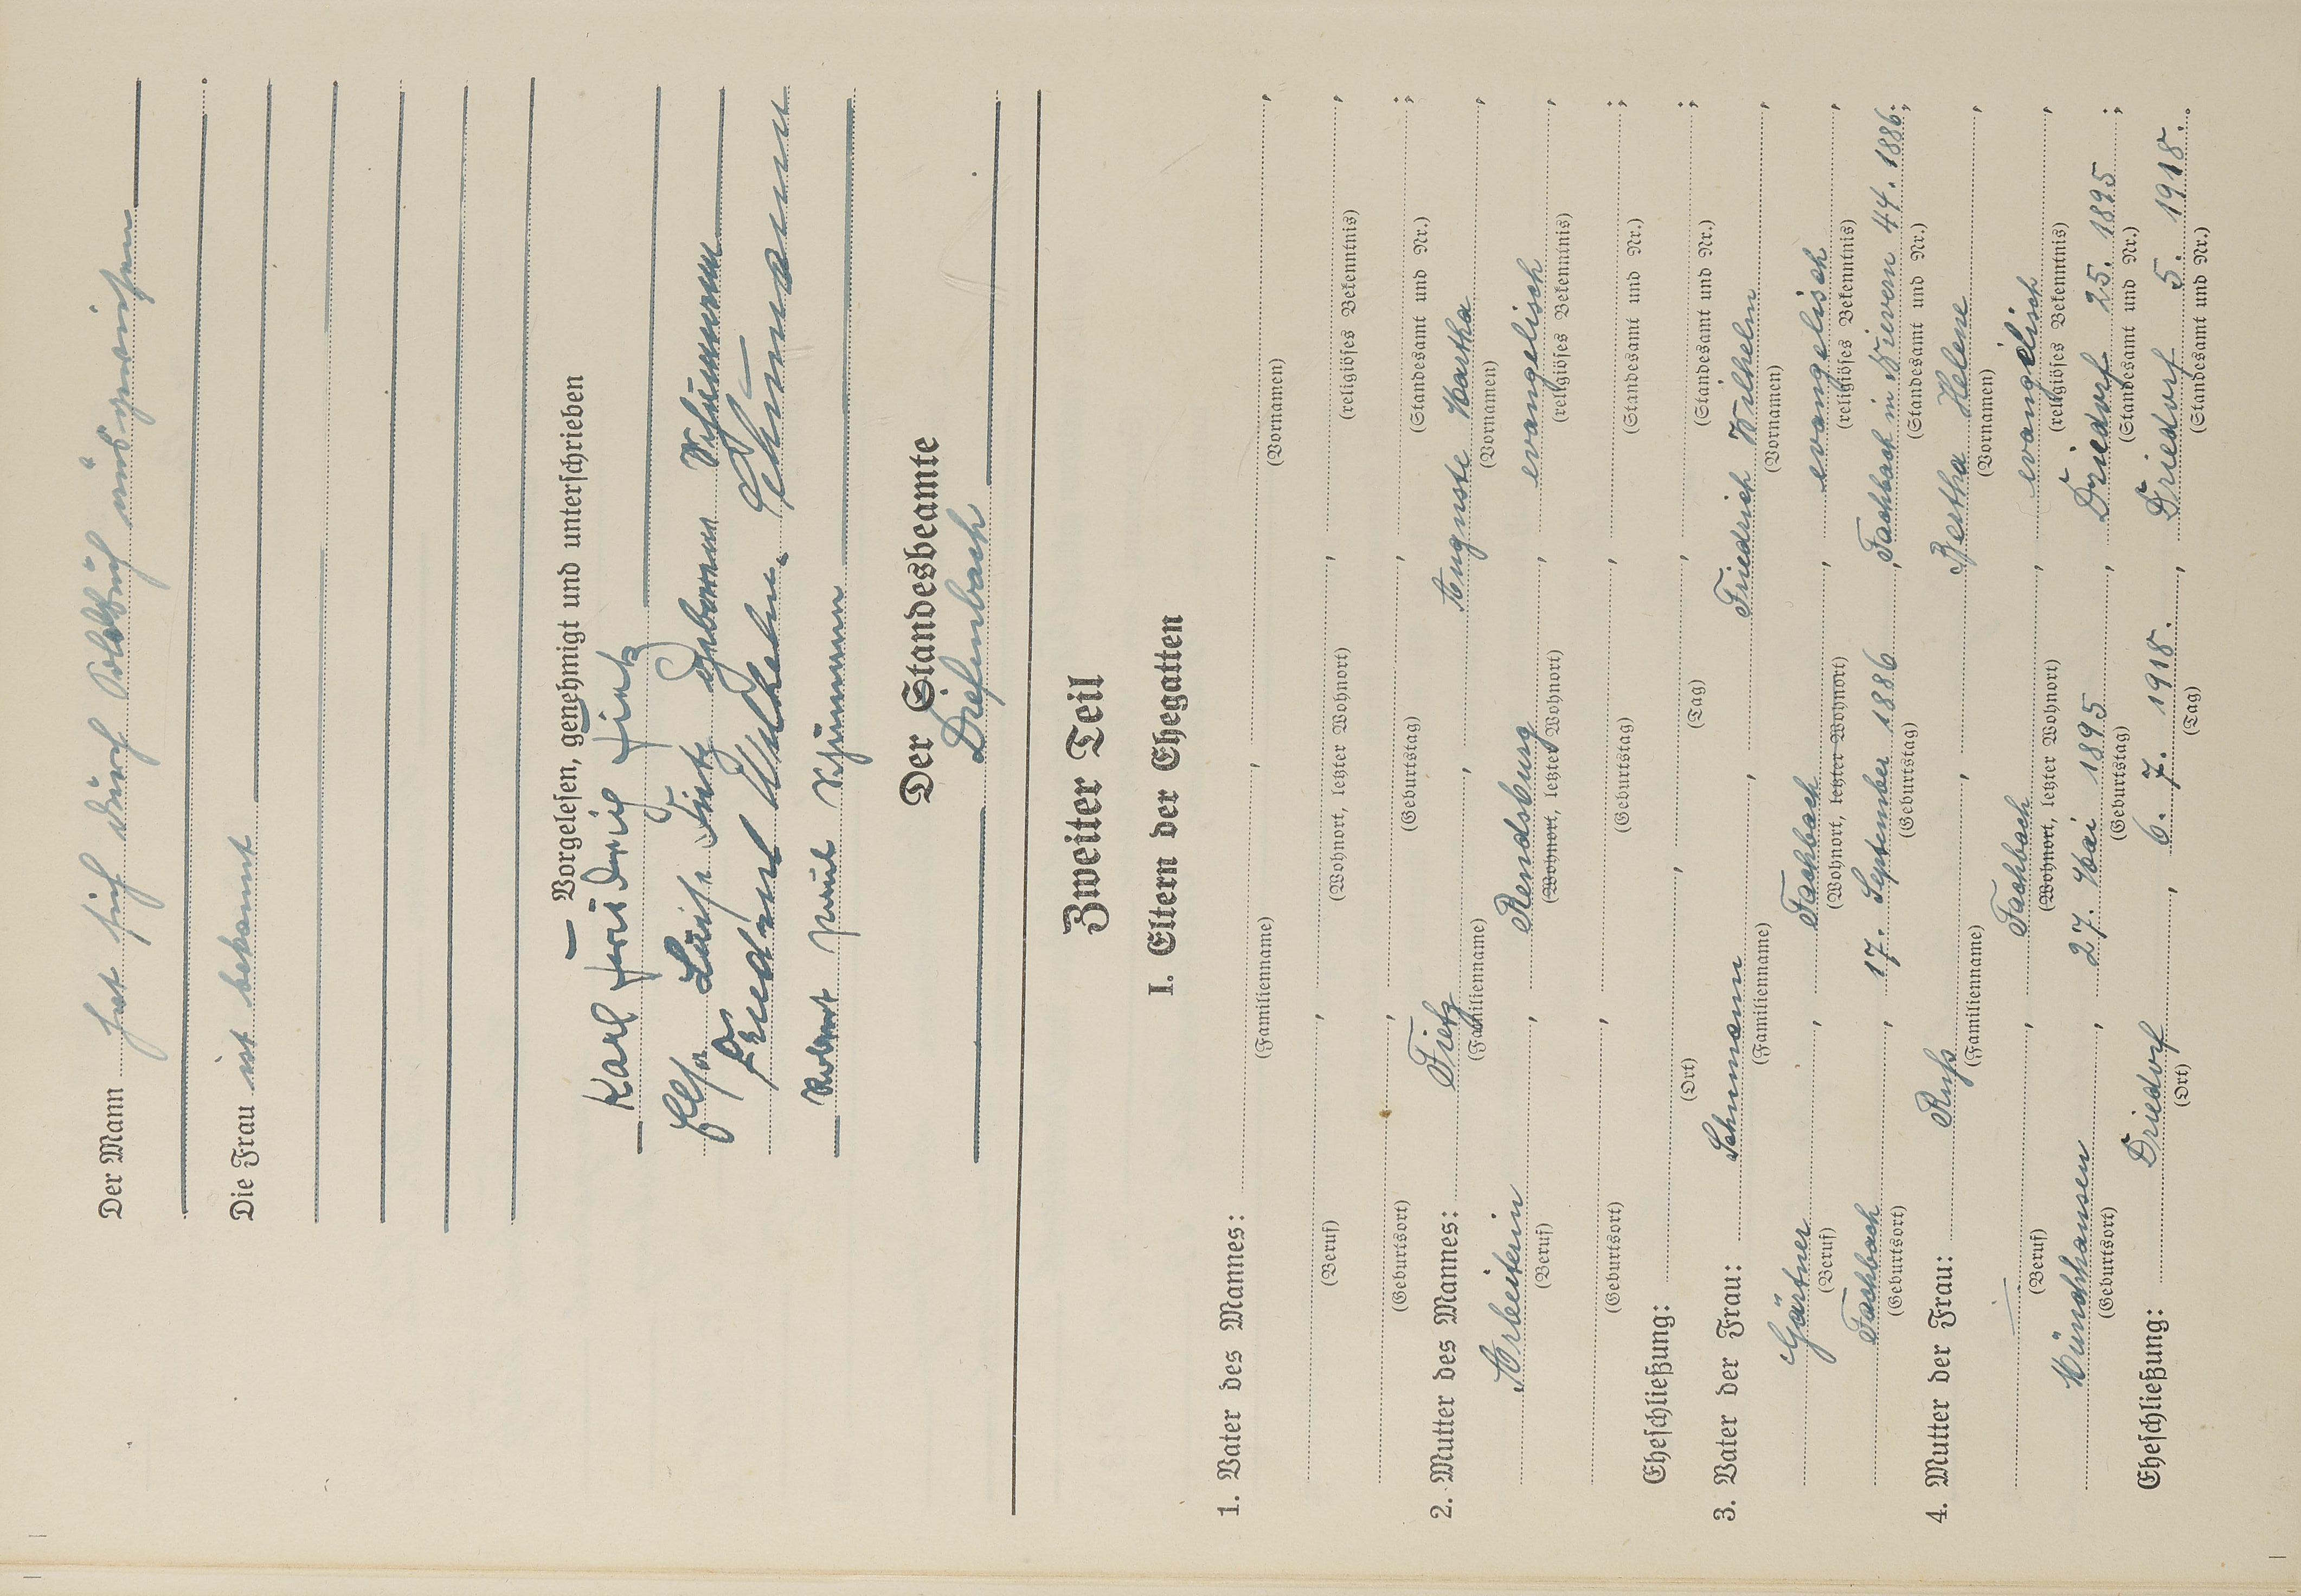 Der Mann hat sich durch Soldbuch ausgewiesen
Die Frau ist bekannt
— Vorgelesen, genehmigt und unterschrieben
Karl Friedrich Fietz
Else Luise Fietz geborene Schumann
Friedrich Wilhelm Schumann
Robert Paul Schumann
Der Standesbeamte
Diefenbach
Zweiter Teil
I. Eltern der Ehegatten
1. Vater des Mannes: , ,
(Familienname) (Vornamen)
, , ,
(Beruf) (Wohnort, letzter Wohnort) (religiöses Bekenntnis)
, , ;
(Geburtsort) (Geburtstag) (Standesamt und Nr.)
2. Mutter des Mannes: Fietz , Auguste Martha ,
(Familienname) (Vornamen)
Arbeiterin , Rendsburg , evangelisch ,
(Beruf) (Wohnort, letzter Wohnort) (religiöses Bekenntnis)
, , ;
(Geburtsort) (Geburtstag) (Standesamt und Nr.)
Eheschließung: , , ;
(Ort) (Tag) (Standesamt und Nr.)
3. Vater der Frau: Schumann , Friedrich Wilhelm ,
(Familienname) (Vornamen)
Gärtner , Fachbach , evangelisch ,
(Beruf) (Wohnort, letzter Wohnort) (religiöses Bekenntnis)
Fachbach , 17. September 1886 , Fachbach in Nievern 44. 1886 ;
(Geburtsort) (Geburtstag) (Standesamt und Nr.)
4. Mutter der Frau: Ruß , Bertha Helene ,
(Familienname) (Vornamen)
— , Fachbach , evangelisch ,
(Beruf) (Wohnort, letzter Wohnort) (religiöses Bekenntnis)
Münchhausen , 27. Mai 1895 , Driedorf 25. 1895 ;
(Geburtsort) (Geburtstag) (Standesamt und Nr.)
Eheschließung: Driedorf , 6. 7. 1918. , Driedorf 5. 1918. .
(Ort) (Tag) (Standesamt und Nr.)